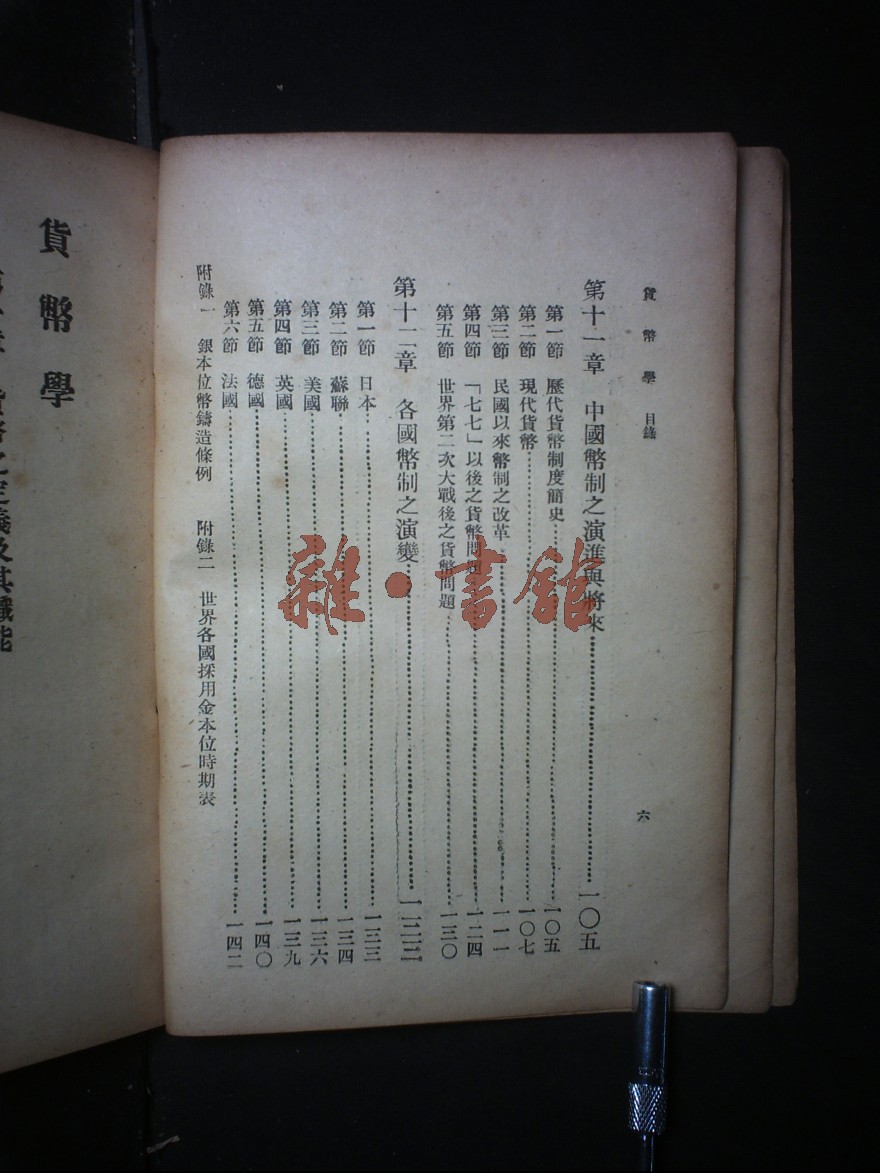 貨幣學 目錄 六
第十一章 中國幣制之演進與將來 一〇五
第一節 歷代貨幣制度簡史 一〇五
第二節 現代貨幣 一〇七
第三節 民國以來幣制之改革 一一一
第四節 「七七」以後之貨幣問題 一二四
第五節 世界第二次大戰後之貨幣問題 一三〇
第十二章 各國幣制之演變 一三三
第一節 日本 一三三
第二節 蘇聯 一三四
第三節 美國 一三六
第四節 英國 一三九
第五節 德國 一四〇
第六節 法國 一四二
附錄一 銀本位幣鑄造條例 附錄二 世界各國採用金本位時期表
貨幣學
章 貨幣之定義及其職能
雜·書館